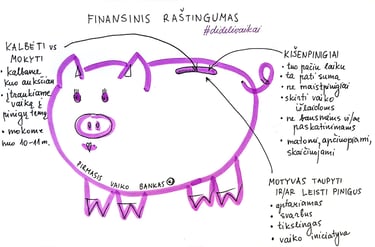 FINANSINIS RAŠTINGUMAS
#didelivaikai
KALBĖTI vs
MOKYTI
• kalbame
kuo anksčiau
• įtraukiame
vaiką į
pinigų temą
• mokome
nuo 10-11m.
KIŠENPINIGIAI
• tuo pačiu laiku
• ta pati suma
• ne maistpinigiai
• skirti vaiko
išlaidoms
• ne bausmėms ir/ar
paskatinimams
• matomi, apčiuopiami,
skaičiuojami
MOTYVAS TAUPYTI
IR/AR LEISTI PINIGUS
• aptariamas
• svarbus
• tikslingas
• vaiko iniciatyva
PIRMASIS VAIKO BANKAS